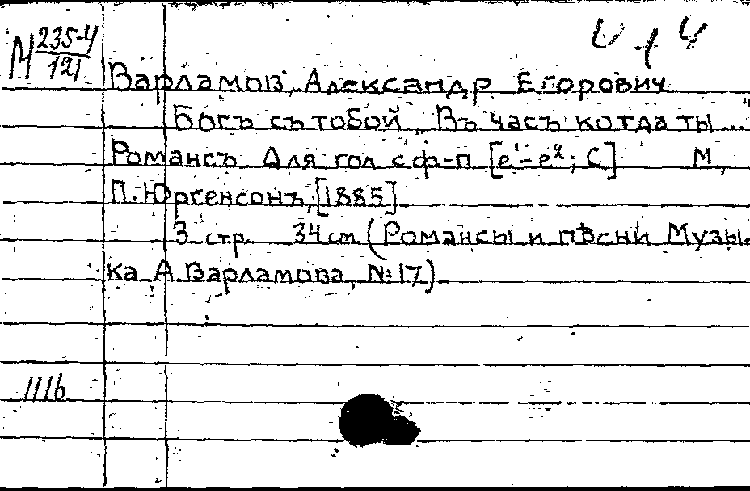 М 235-4
121
Варламов, Александр Егорович
Богъ съ тобой „Въ часъ когда ты..."
Романсъ Для гол с ф-п [e¹-e²; C] М.,
П. Юргенсонъ, [1885]
3 стр. 34 см (Романсы и пѣсни Музы-
ка А Варламова, №17)
1116